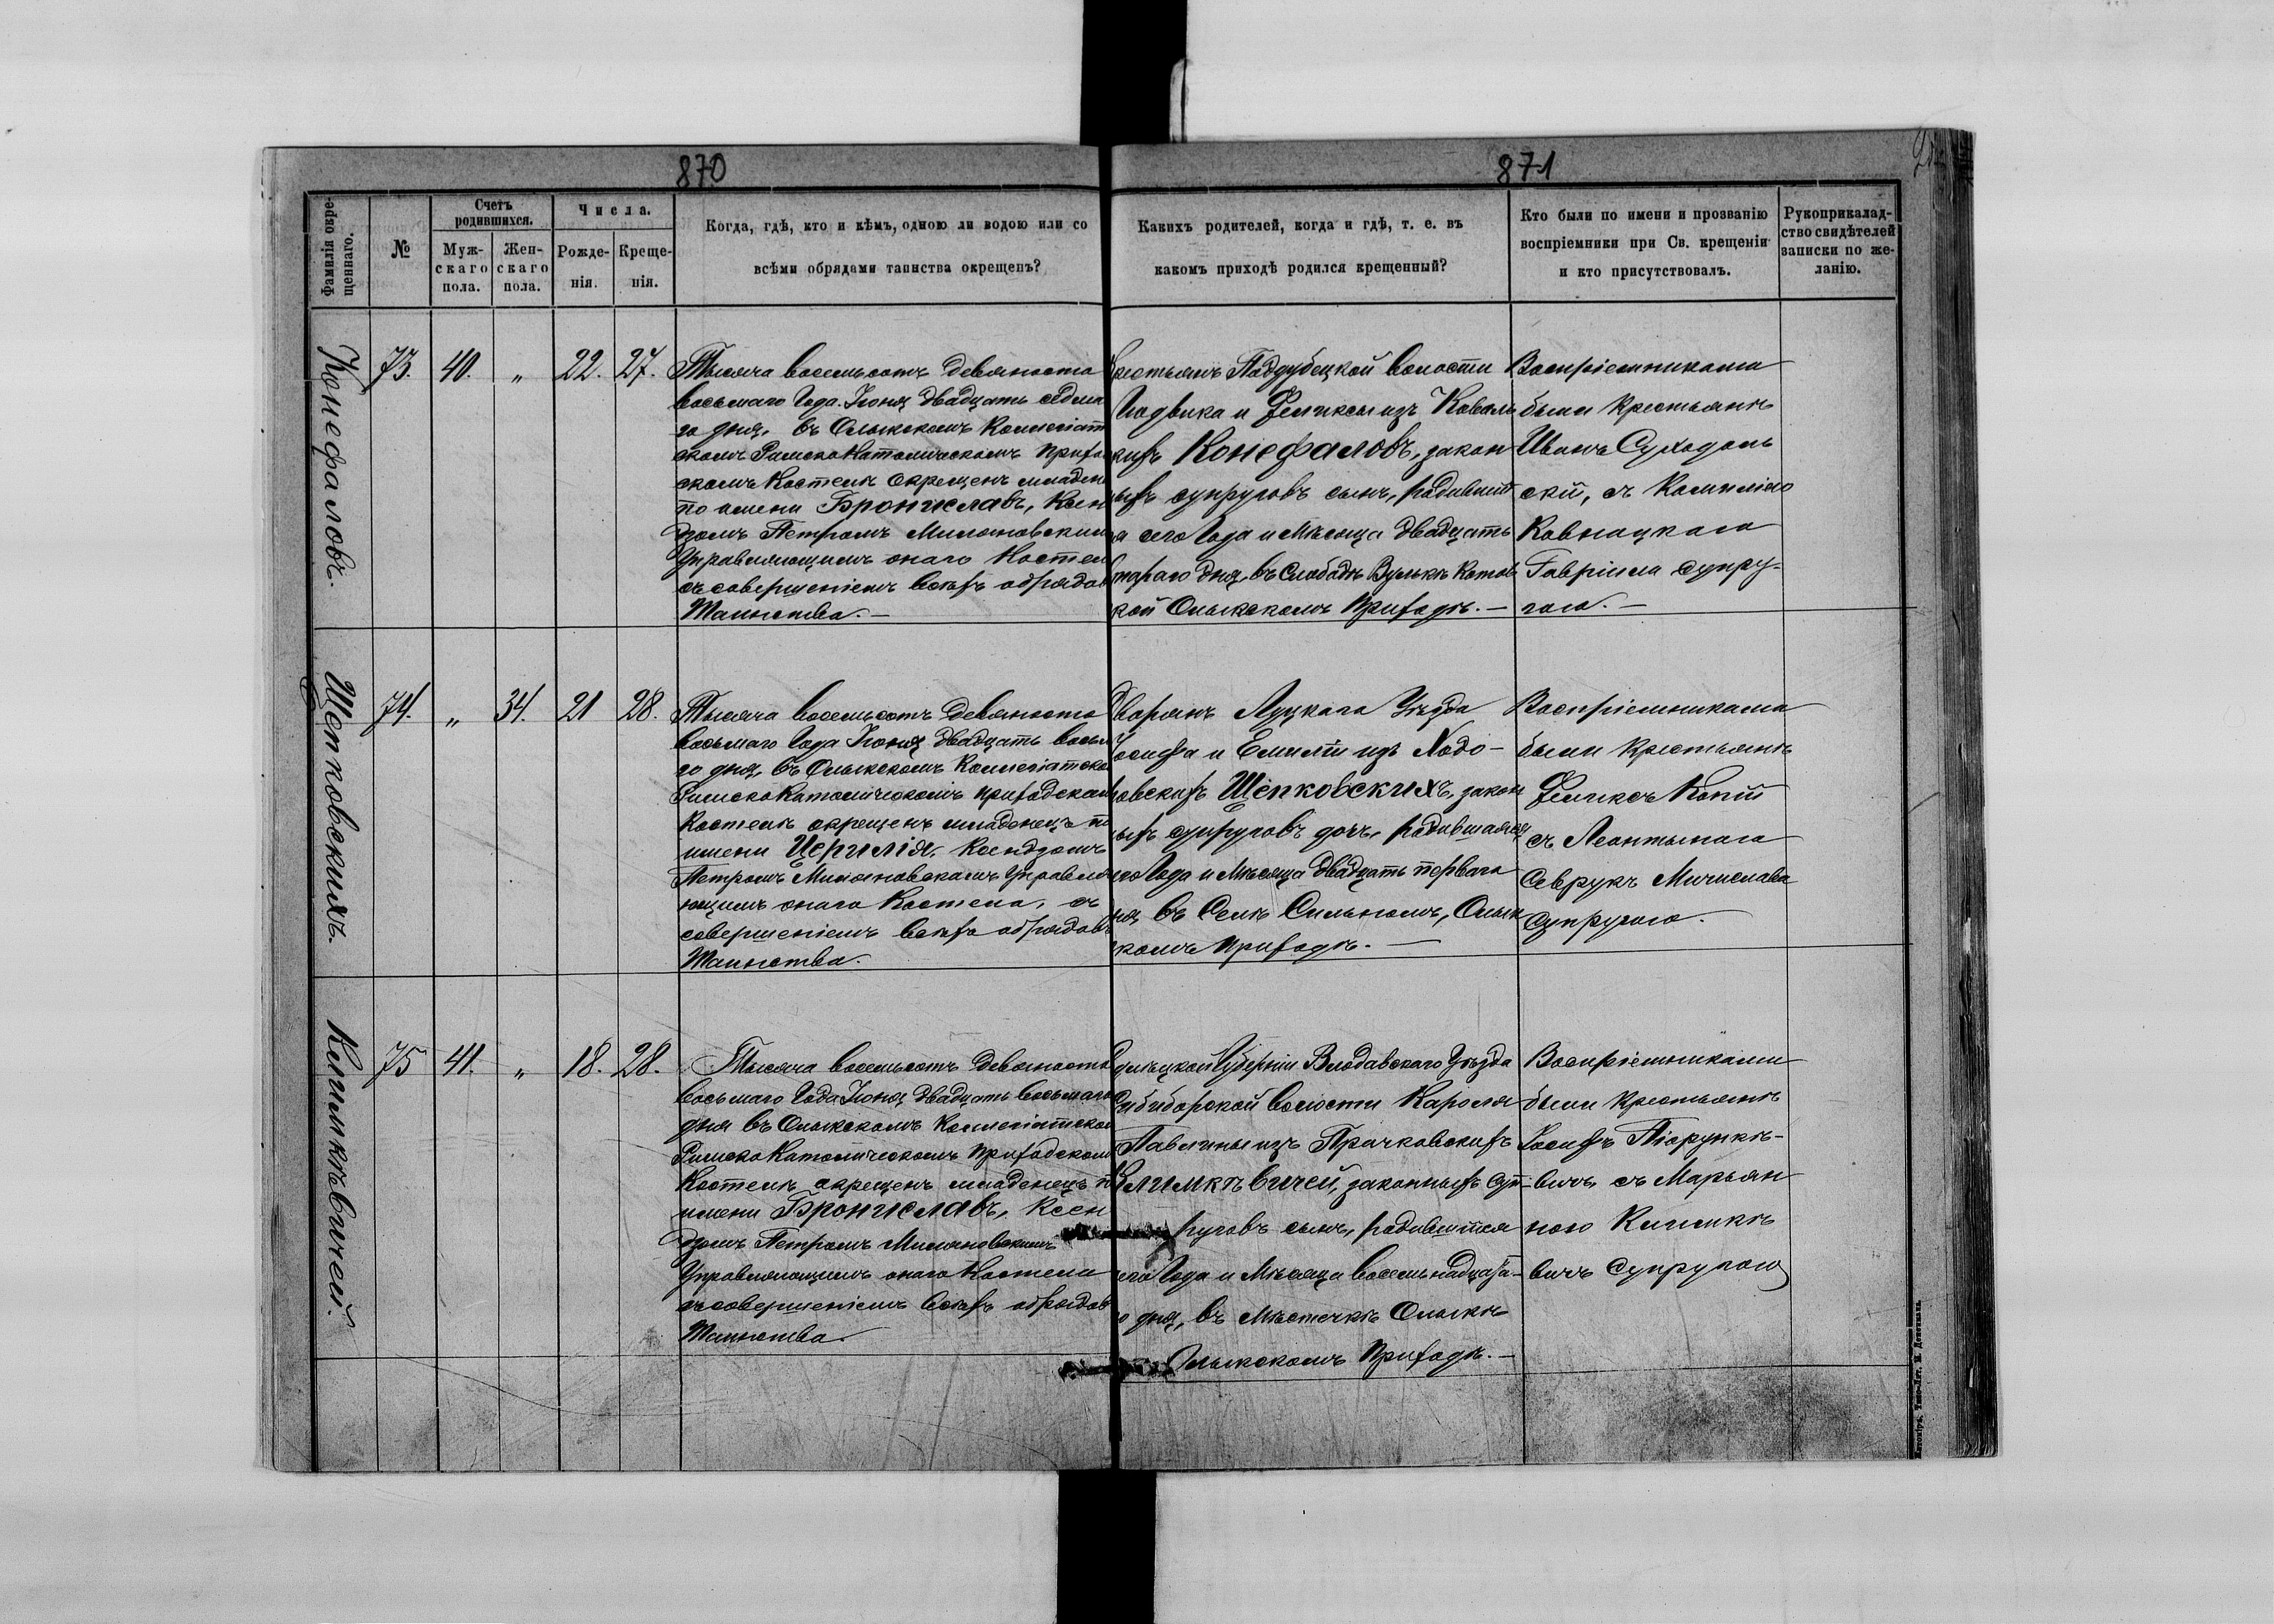 870
871
Фамилія окрещеннаго.
№
Счетъ родившихся.
Мужскаго пола.
Женскаго пола.
Числа.
Рожденія.
Крещенія.
Когда, гдѣ, кто и кѣмъ, одною ли водою или со
всѣми обрядами таинства окрещенъ?
Какихъ родителей, когда и гдѣ, т. е. въ
какомъ приходѣ родился крещенный?
Кто были по имени и прозванію
воспріемники при Св. крещеніи
и кто присутствовалъ.
Рукоприкладство свидѣтелей записки по желанію.
Конефаловъ.
73.
40.
"
22.
27.
Тысяча восемьсотъ девяноста
восьмаго Года Іюня двадцать седма
го дня, въ Олыкскомъ Коллегіат
скомъ РимскоКатолическомъ прихо
скомъ Костелѣ окрещенъ младен
по имени Брониславъ, Ксен
дзомъ Петромъ Миляновским
Управляющимъ онаго Костел
съ совершеніемъ всѣхъ обрядов
Таинства.—
рестьянъ Поддубецкой волости
Людвика и Феликсы изъ Коваль
кихъ Конефаловъ, закон
ыхъ супруговъ сынъ, родившій
я сего Года и Мѣсяца двадцать
тораго дня, въ Слободѣ Вулькѣ Котов
кой Олыкскомъ Приходѣ.—
Воспріемниками
были крестьянъ
Иванъ Суходоль
скій, съ Камиліею
Ковнацкаго
Гавріила супру-
гою.—
Щепковскихъ.
74.
"
34.
21
28.
Тысяча восемьсотъ девяноста
восьмаго Года Іюня двадцать восьм
го дня, въ Олыкскомъ Коллегіатско
РимскоКатолическомъ приходском
Костелѣ окрещенъ младенецъ по
имени Церилія, Ксендзомъ
Петромъ Миляновскимъ Управля
ющимъ онаго Костела, съ
совершеніемъ всѣхъ обрядовъ
Таинства.
Дворянъ Луцкаго Уѣзда
Іосифа и Емиліи изъ Ходо-
ровскихъ Щепковскихъ, закон
ыхъ супруговъ дочь, родившаяся
его Года и Мѣсяца двадцать перваго
ня, въ Селѣ Сильномъ, Олык
комъ приходѣ.—
Воспріемниками
были крестьянъ
Феликсъ Копій
съ Леонтыною
Севрукъ Мечислава
супругою.
Климкѣвичей.
75
41.
"
18.
28.
Тысяча восемьсотъ девяноста
восьмаго Года Іюня двадцать восьмаго
дня въ Олыкскомъ Коллегіатском
РимскоКатолическомъ приходском
Костелѣ окрещенъ младенецъ п
имени Брониславъ, Ксен
дзомъ Петромъ Миляновскимъ
Управляющимъ онаго Костела
съ совершеніемъ всѣхъ обрядов
Таинства.
Сѣдлецкой Губерніи Влодавскаго Уѣзда
Собиборской волости Кароля
Павлины изъ Прачковскихъ
Климкѣвичей, законныхъ суп-
руговъ сынъ, родившійся
его Года и Мѣсяца восемьнадцата-
о дня, въ Мѣстечкѣ Олыкѣ
Олыкскомъ Приходѣ.—
Воспріемниками
были крестьянъ
Іосифъ Піорункѣ-
вичъ, съ Марьян
ною Климкѣ
вичъ супругою